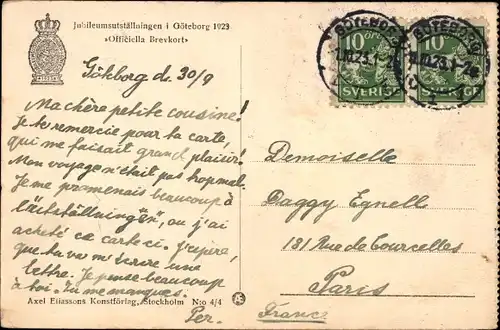 Jubileumsutställningen i Göteborg 1923
»Officiella Brevkort»
Göteborg d. 30/9
Ma chère petite cousine!
Je te remercie pour ta carte,
qui me faisait grand plaisir!
Mon voyage n'était pas
Je me promenais beaucoup à
l'"Utställningen", où j'ai
acheté ce carte-ci. J'espère,
que tu va m'écrire une
lettre. Je pense beaucoup
à toi. Tu me manques.
Per.
Axel Eliassons Konstförlag, Stockholm N:o 4/4
10 ÖRE 10
SVERIGE SVERIGE
GÖTEBORG GÖTEBORG
1.10.23.1-2
Demoiselle
Daggy Egnell
131 Rue de Courcelles
Paris
France